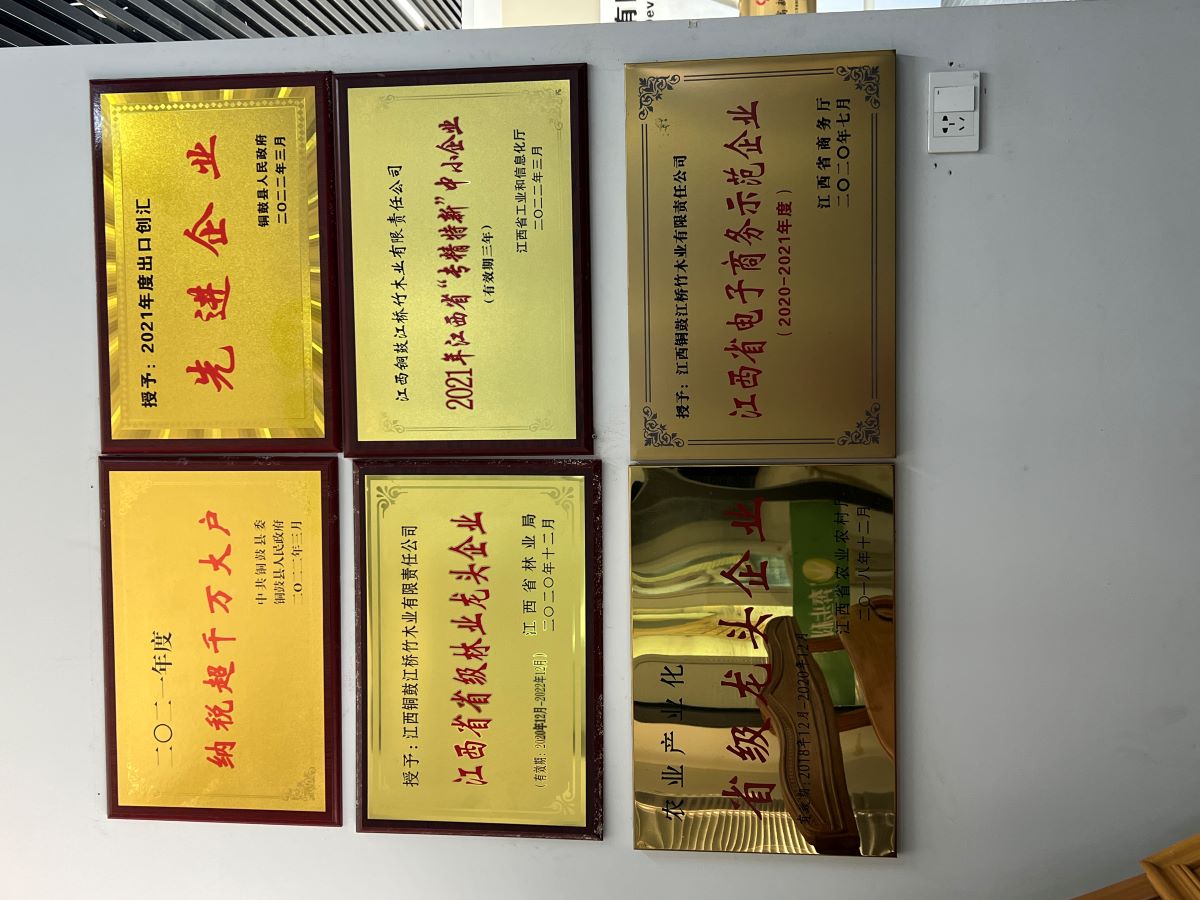 二〇二一年度
纳税超千万大户
中共铜鼓县委
铜鼓县人民政府
二〇二二年三月
授予：2021年度出口创汇
先进企业
铜鼓县人民政府
二〇二二年三月
授予：江西铜鼓江桥竹木业有限责任公司
江西省省级林业龙头企业
（有效期：2020年12月-2022年12月）
江西省林业局
二〇二〇年十二月
江西铜鼓江桥竹木业有限责任公司
2021年江西省“专精特新”中小企业
（有效期三年）
江西省工业和信息化厅
二〇二二年三月
农业产业化
省级龙头企业
有效期：2018年12月-2020年12月
江西省农业农村厅
二〇一八年十二月
授予：江西铜鼓江桥竹木业有限责任公司
江西省电子商务示范企业
（2020-2021年度）
江西省商务厅
二〇二〇年七月